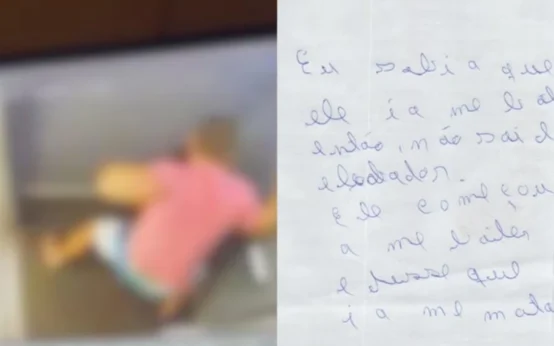 Eu sabia que
ele ia me bat
então, não sai d
elevador.
Ele começou
a me bater
e disse que
ia me mata